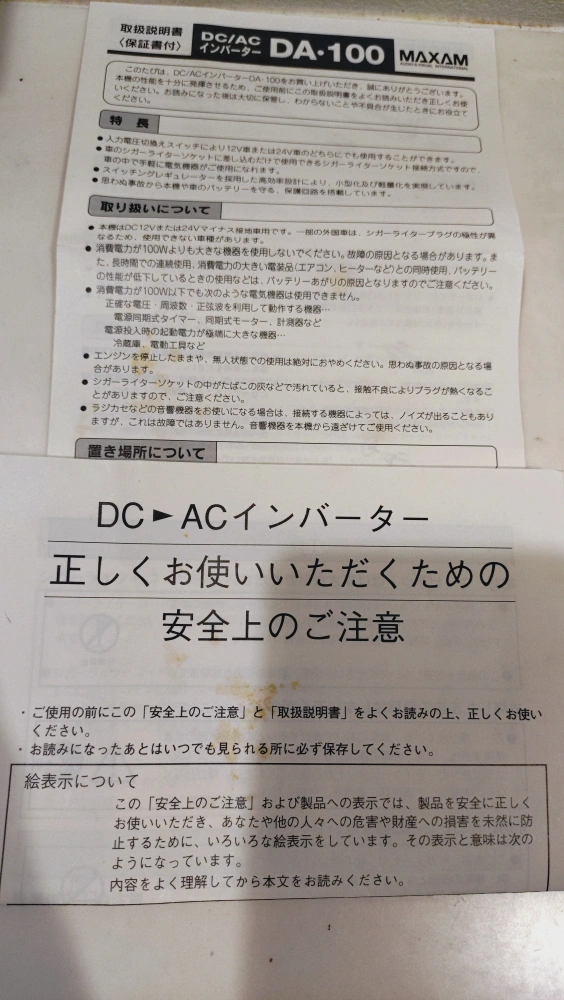 取扱説明書
〈保証書付〉
DC/AC
インバーター DA・100
MAXAM
このたびは、DC/ACインバーターDA-100をお買い上げいただき、誠にありがとうございます。
本機の性能を十分に発揮させるため、ご使用前にこの取扱説明書をよくお読みいただき正しくお使
いください。お読みになった後は大切に保管し、わからないことや不具合が生じたときにお役立て
ください。
特長
● 入力電圧切換えスイッチにより12V車または24V車のどちらにでも使用することができます。
● 車のシガーライターソケットに差し込むだけで使用できるシガーライターソケット接続方式ですので、
車の中で手軽に電気機器がご使用になれます。
● スイッチングレギュレーターを採用した高効率設計により、小型化及び軽量化を実現しています。
● 思わぬ事故から本機や車のバッテリーを守る、保護回路を搭載しています。
取り扱いについて
● 本機はDC12Vまたは24Vマイナス接地車用です。一部の外国車は、シガーライタープラグの極性が異
なるため、使用できない車種があります。
● 消費電力が100Wよりも大きな機器を使用しないでください。故障の原因となる場合があります。ま
た、長時間での連続使用、消費電力の大きい電装品(エアコン、ヒーターなど)との同時使用、バッテリー
の性能が低下しているときの使用などは、バッテリーあがりの原因となりますのでご注意ください。
● 消費電力が100W以下でも次のような電気機器は使用できません。
正確な電圧・周波数・正弦波を利用して動作する機器…
電源同期式タイマー、同期式モーター、計測器など
電源投入時の起動電力が極端に大きな機器…
冷蔵庫、電動工具など
● エンジンを停止したままや、無人状態での使用は絶対におやめください。思わぬ事故の原因となる場
合があります。
● シガーライターソケットの中がたばこの灰などで汚れていると、接触不良によりプラグが熱くなるこ
とがありますので、ご注意ください。
● ラジカセなどの音響機器をお使いになる場合は、接続する機器によっては、ノイズが出ることもあり
ますが、これは故障ではありません。音響機器を本機から遠ざけてご使用ください。
置き場所について
DC►ACインバーター
正しくお使いいただくための
安全上のご注意
・ご使用の前にこの「安全上のご注意」と「取扱説明書」をよくお読みの上、正しくお使い
ください。
・お読みになったあとはいつでも見られる所に必ず保存してください。
絵表示について
この「安全上のご注意」および製品への表示では、製品を安全に正しく
お使いいただき、あなたや他の人々への危害や財産への損害を未然に防
止するために、いろいろな絵表示をしています。その表示と意味は次の
ようになっています。
内容をよく理解してから本文をお読みください。